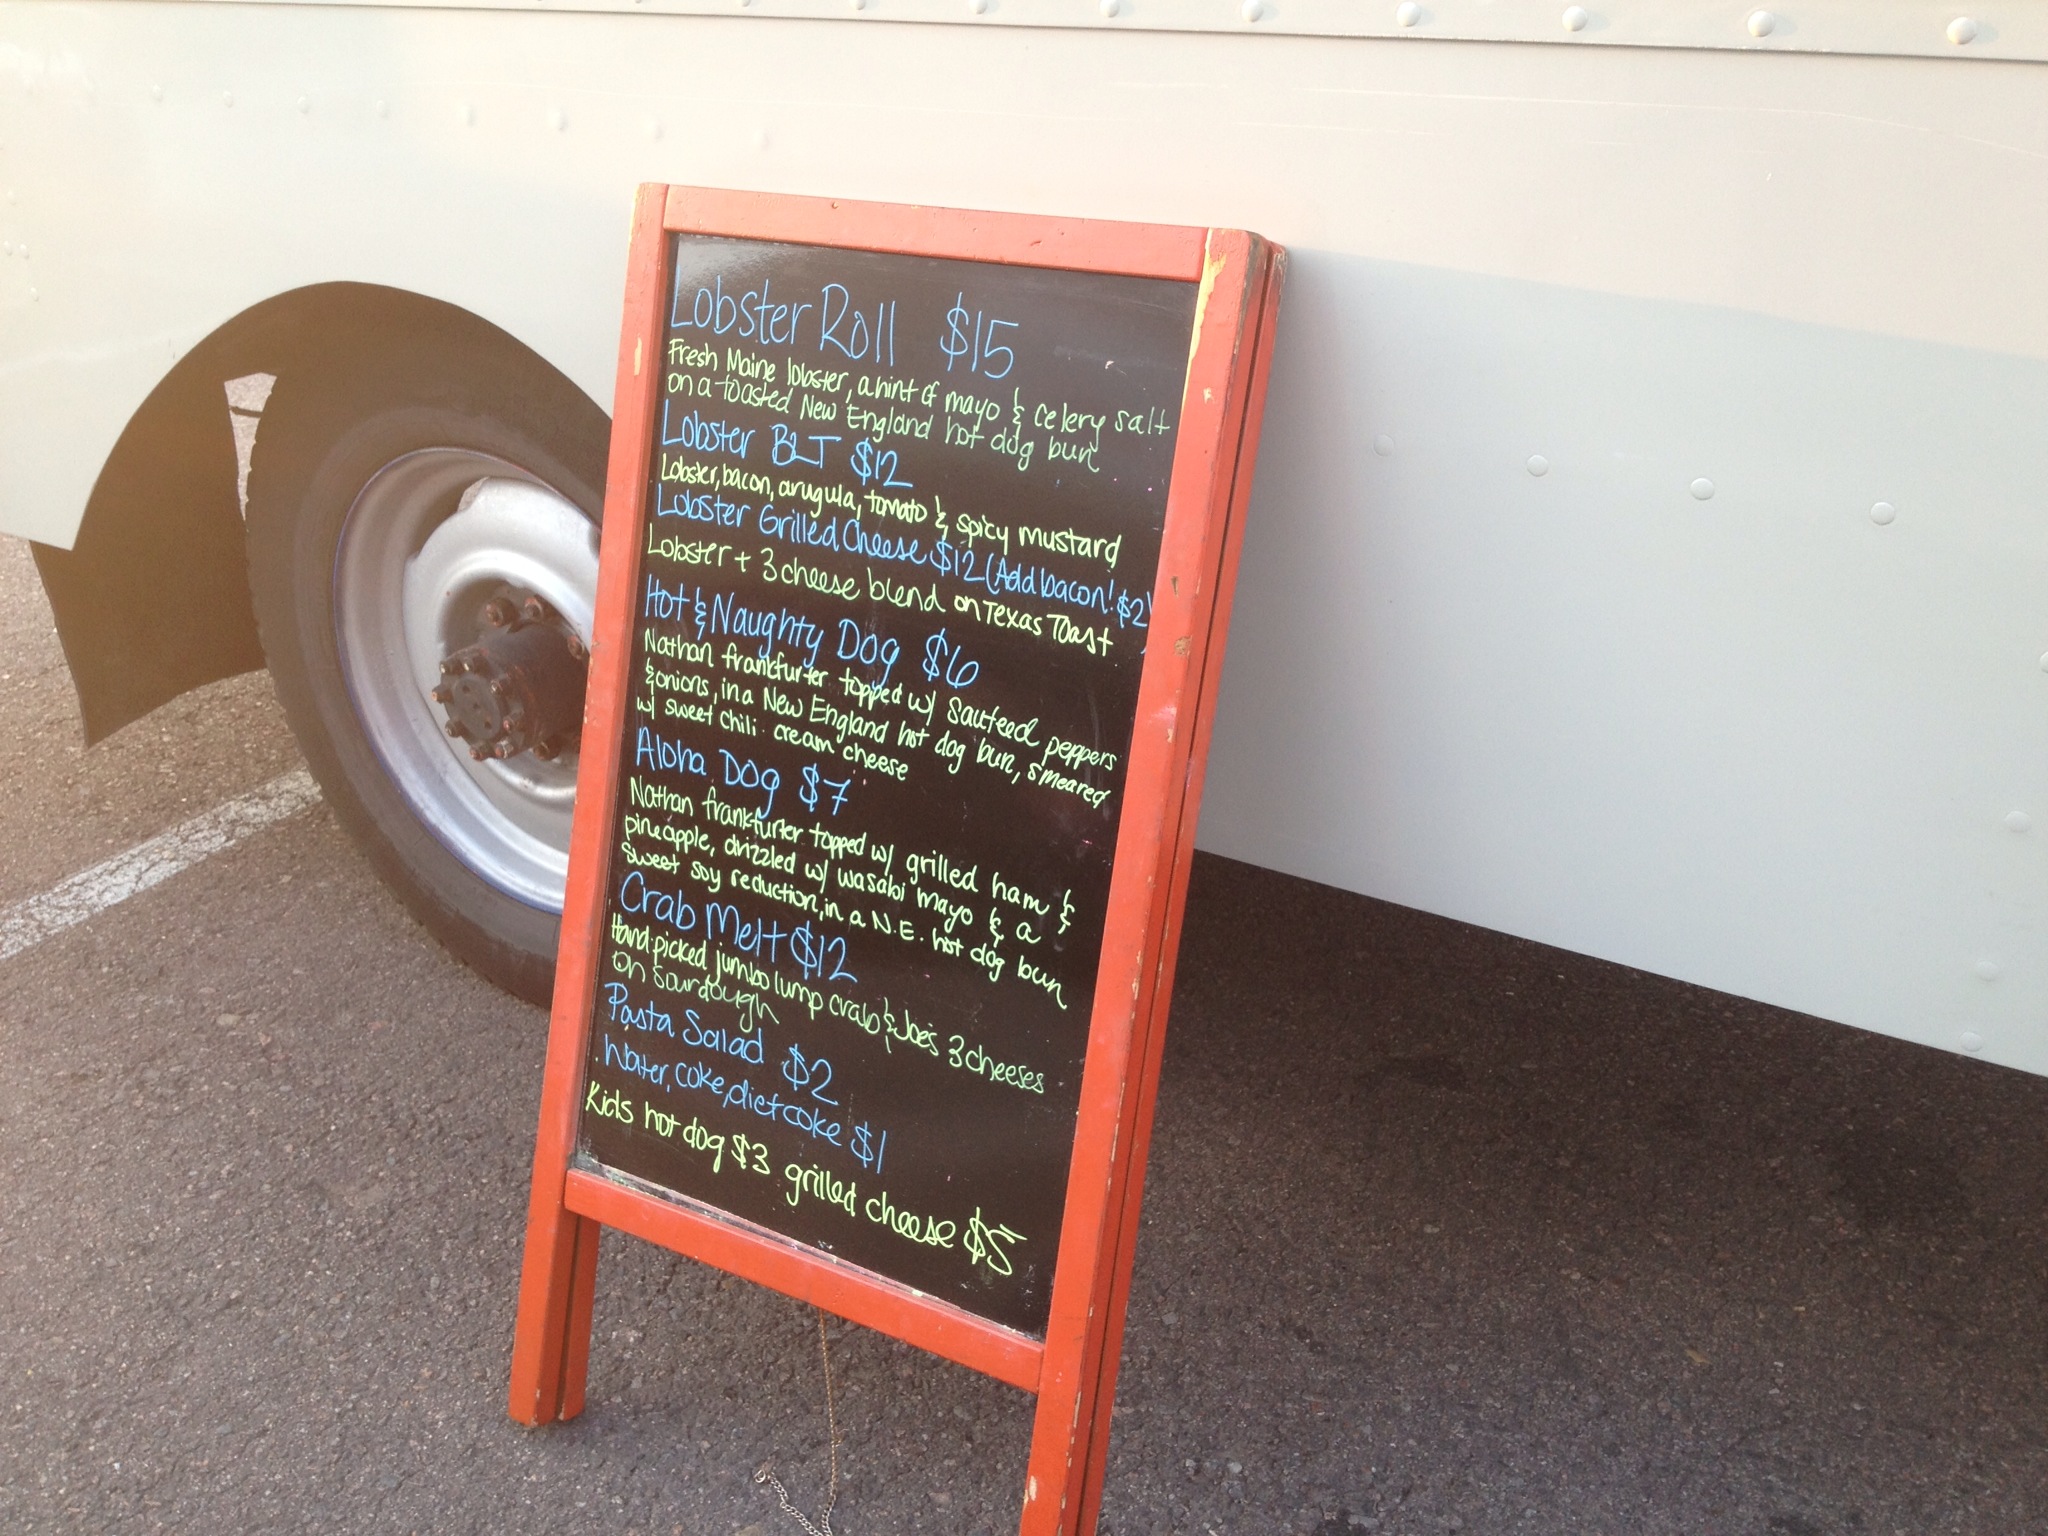 Lobster Roll $15
Fresh Maine lobster, a hint of mayo & celery salt
on a toasted New England hot dog bun
Lobster BLT $12
Lobster, bacon, arugula, tomato & spicy mustard
Lobster Grilled Cheese $12 (Add bacon! $2)
Lobster + 3 cheese blend on Texas Toast
Hot & Naughty Dog $6
Nathan frankfurter topped w/ sauteed peppers
& onions, in a New England hot dog bun, smeared
w/ sweet chili cream cheese
Aloha Dog $7
Nathan frankfurter topped w/ grilled ham &
pineapple, drizzled w/ wasabi mayo & a
sweet soy reduction, in a N.E. hot dog bun
Crab Melt $12
Hand-picked jumbo lump crab & Joe's 3 cheeses
on sourdough
Pasta Salad $2
Water, coke, diet coke $1
Kids hot dog $3 grilled cheese $5